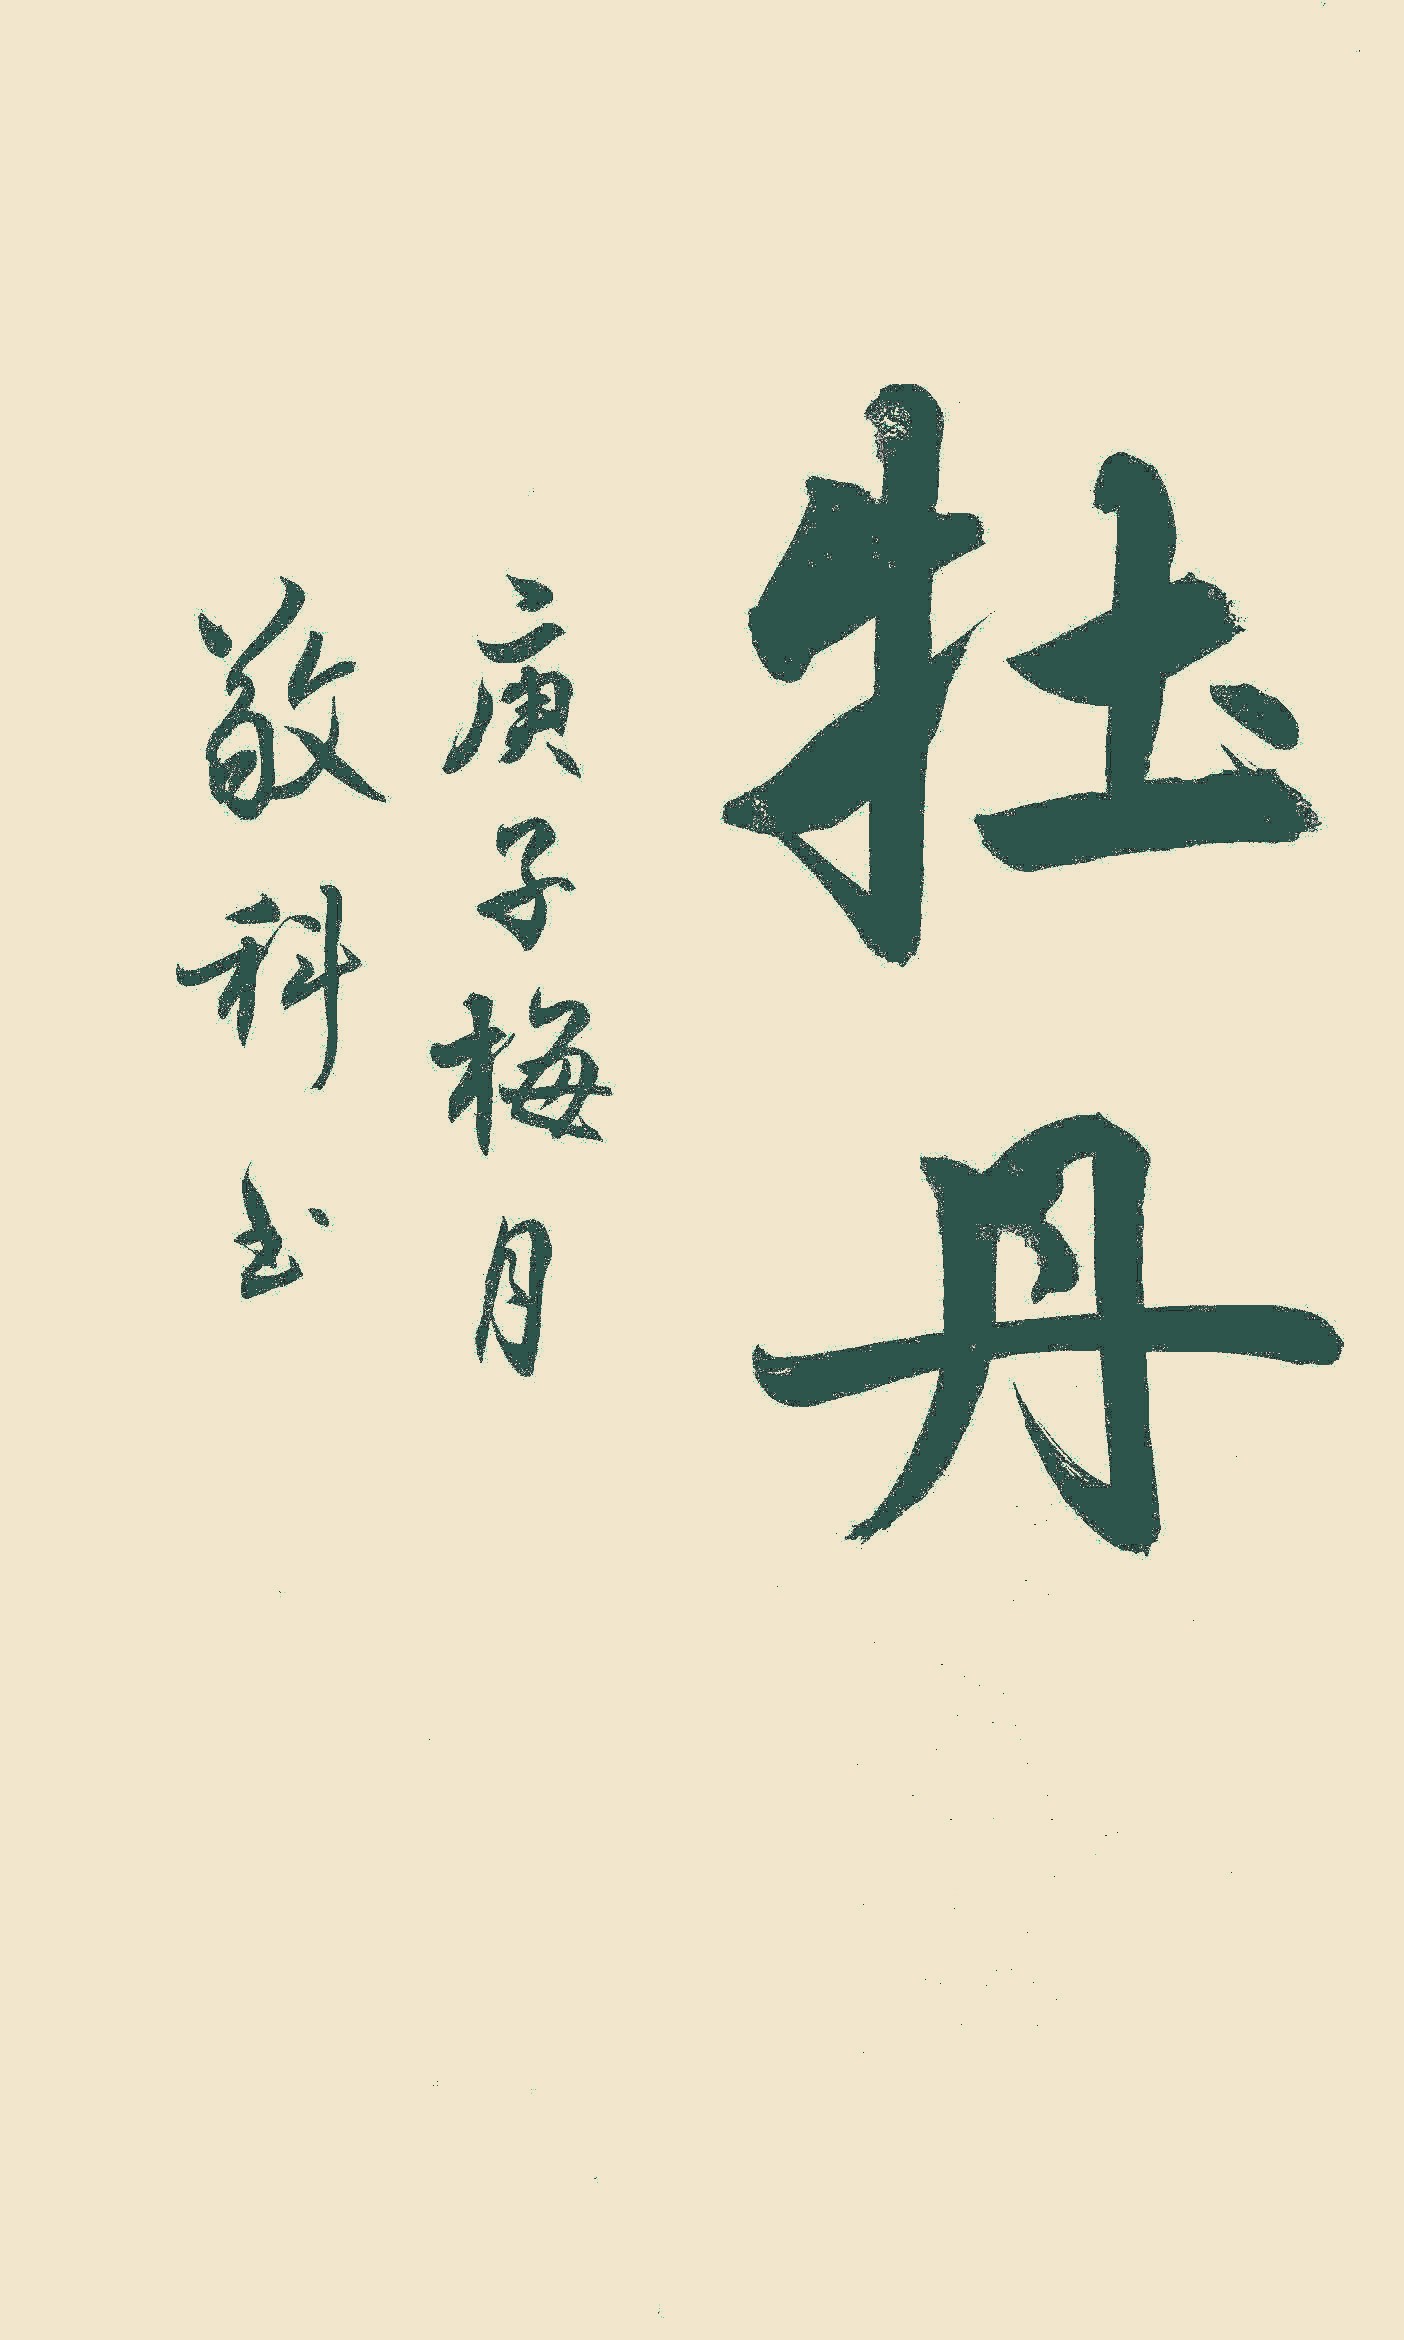 牡丹
庚子梅月
敬科书